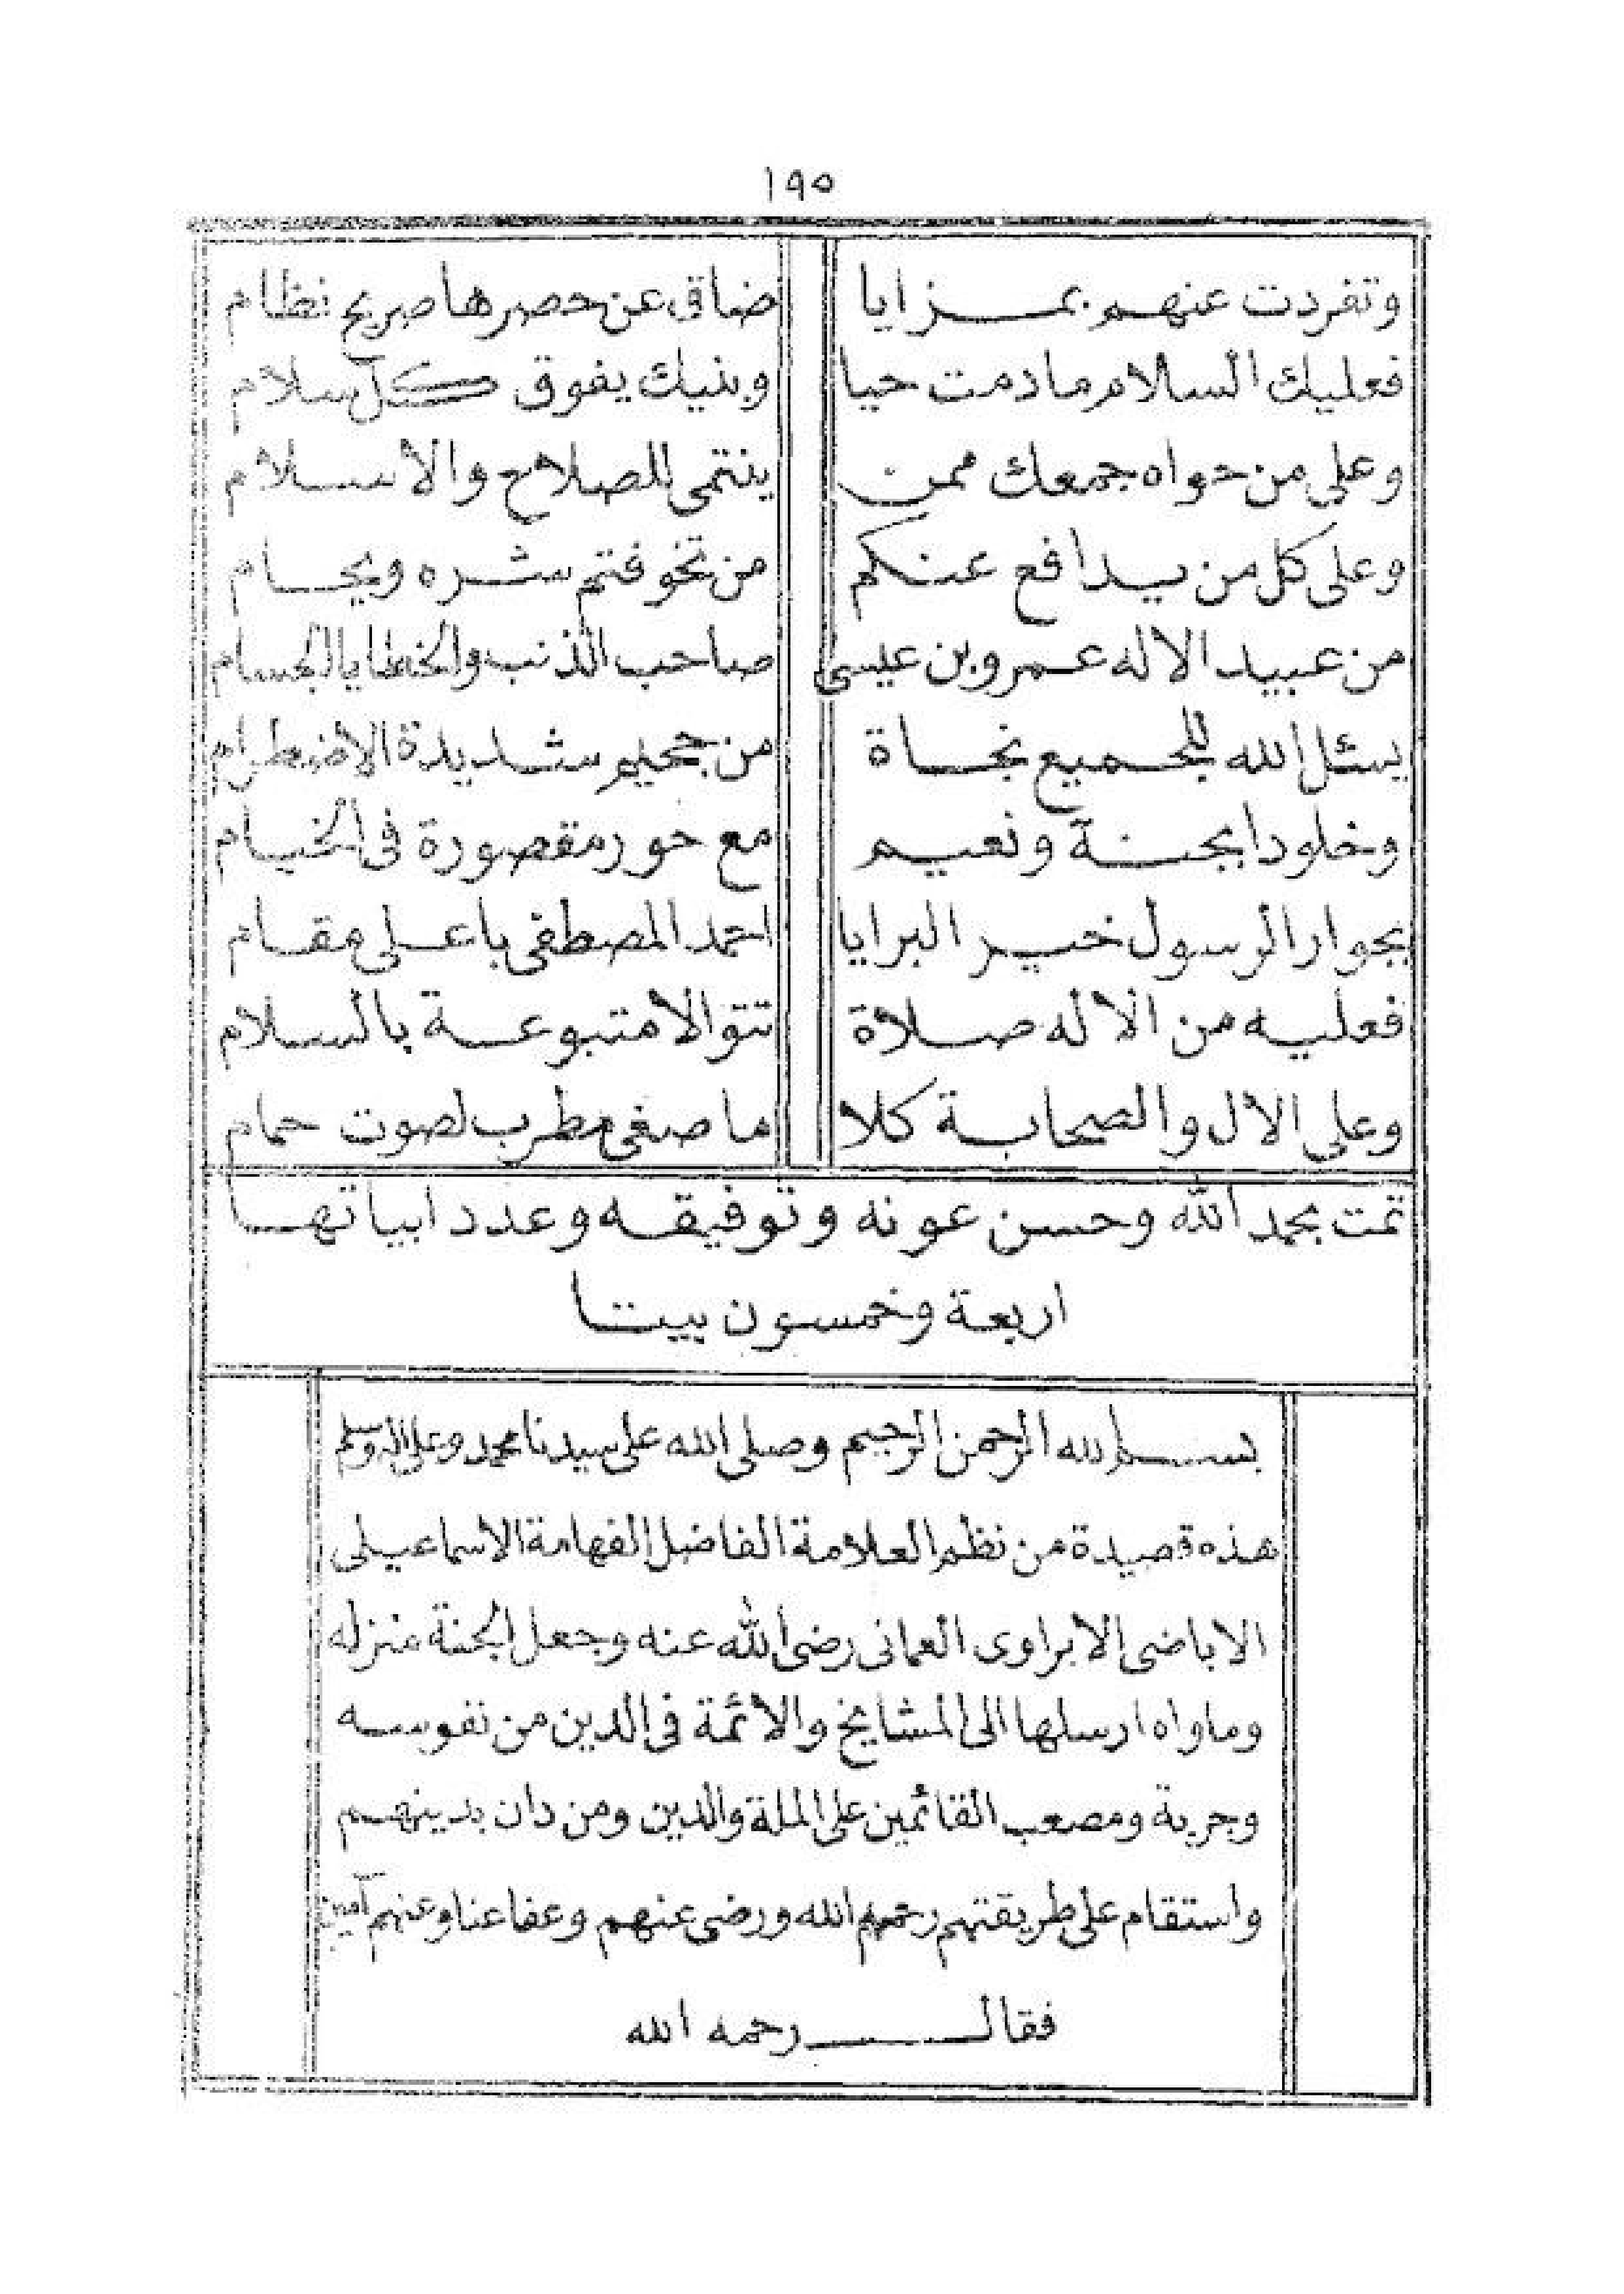 ١٩٥
وتفردت عنهم بمزايا ضاق عن حصرها صريح نظام
فعليك السلام ما دمت حيا وبنيك يفوق كل سلام
وعلى من حواه جمعك ممن ينتمى للصلاح والاسلام
وعلى كل من يدافع عنكم من تخوفتم شره ويحام
من عبيد الاله عمرو بن عيسى صاحب الذنب والخطايا الجسام
يسئل الله للجميع نجاة من جحيم شديدة الاضطرام
وخلودا بجنة ونعيم مع حور مقصورة فى الخيام
بجوار الرسول خير البرايا احمد المصطفى باعلى مقام
فعليه من الاله صلاة تتوالا متبوعة بالسلام
وعلى الال والصحابة كلا ما صغى مطرب لصوت حمام
تمت بحمد الله وحسن عونه وتوفيقه وعدد ابياتها
اربعة وخمسون بيتا
بسم الله الرحمن الرحيم وصلى الله على سيدنا محمد وعلى اله وسلم
هذه قصيدة من نظم العلامة الفاضل الفهامة الاسماعيلى
الاباضى الابراوى العمانى رضى الله عنه وجعل الجنة منزله
وماواه ارسلها الى المشايخ والائمة فى الدين من نفوسه
وجربة ومصعب القائمين على الملة والدين ومن دان بدينهم
واستقام على طريقتهم رحمهم الله ورضى عنهم وعفا عنا وعنهم آمين
فقال رحمه الله